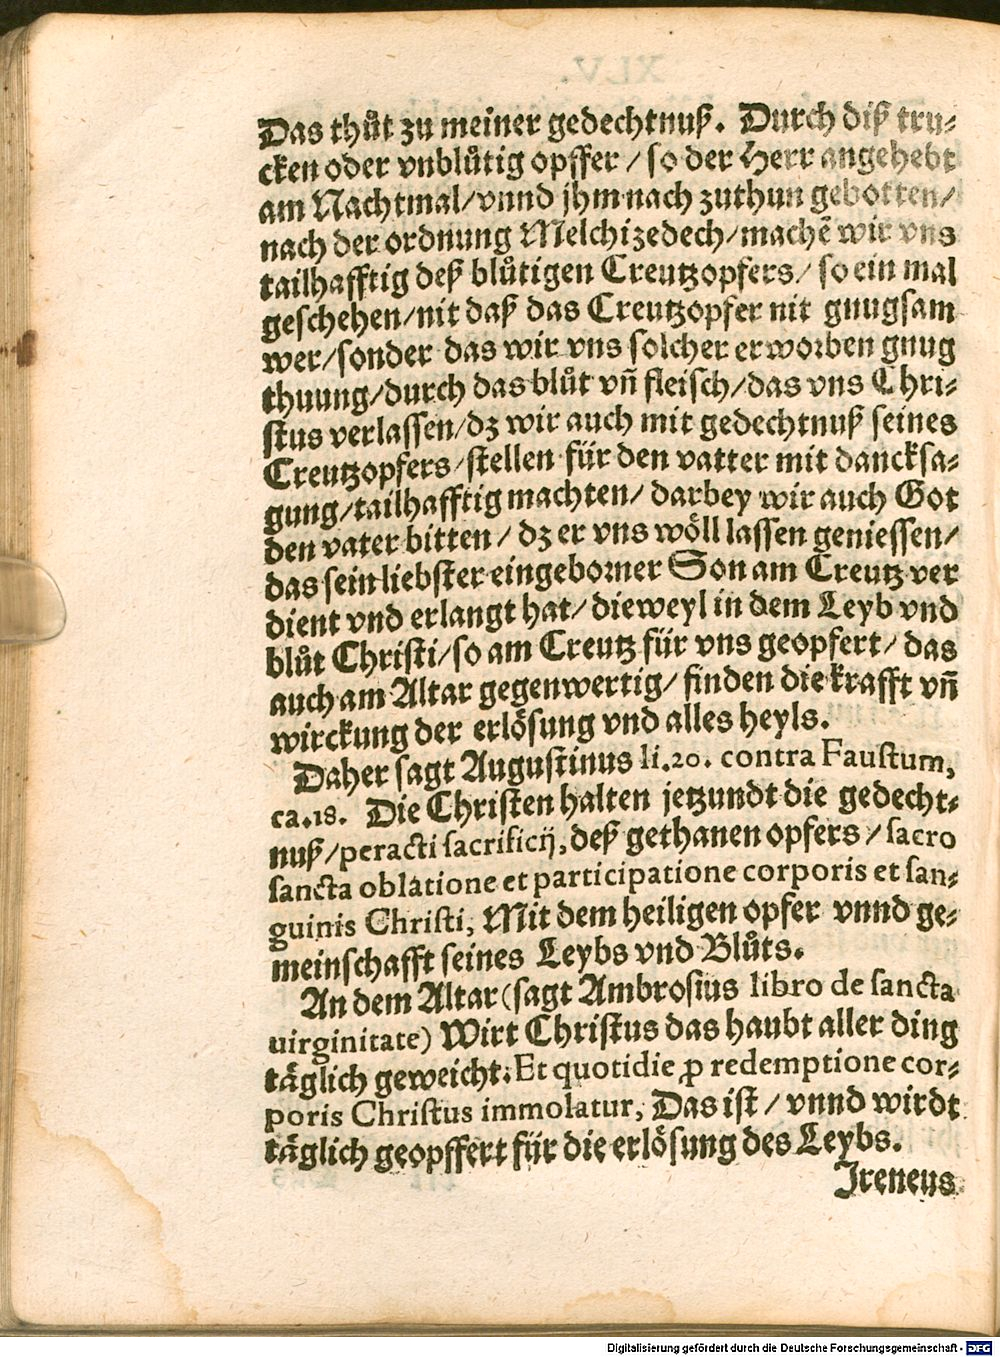 Das thůt zu meiner gedechtnuß. Durch diß tru-
cken oder vnblůtig opffer / so der Herr angehebt
am Nachtmal/vnnd jhm nach zuthun gebotten/
nach der ordnung Melchizedech/machẽ wir vns
tailhafftig deß blůtigen Creutzopfers/ so ein mal
geschehen/nit daß das Creutzopfer nit gnugsam
wer/sonder das wir vns solcher erworben gnug
thuung/durch das blůt vñ fleisch/das vns Chri-
stus verlassen/dz wir auch mit gedechtnuß seines
Creutzopfers/stellen für den vatter mit dancksa-
gung/tailhafftig machten/ darbey wir auch Got
den vater bitten / dz er vns wöll lassen geniessen/
das sein liebster eingeborner Son am Creutz ver
dient vnd erlangt hat/ dieweyl in dem Leyb vnd
blůt Christi/so am Creutz für vns geopfert/ das
auch am Altar gegenwertig/ finden die krafft vñ
wirckung der erlösung vnd alles heyls.
Daher sagt Augustinus li.20. contra Faustum,
ca.18. Die Christen halten jetzundt die gedecht-
nuß/peracti sacrificij, deß gethanen opfers / sacro
sancta oblatione et participatione corporis et san-
guinis Christi, Mit dem heiligen opfer vnnd ge-
meinschafft seines Leybs vnd Blůts.
An dem Altar (sagt Ambrosius libro de sancta
uirginitate) Wirt Christus das haubt aller ding
täglich geweicht. Et quotidie ꝓ redemptione cor-
poris Christus immolatur, Das ist / vnnd wirdt
täglich geopffert für die erlösung des Leybs.
Ireneus
Digitalisierung gefördert durch die Deutsche Forschungsgemeinschaft - DFG